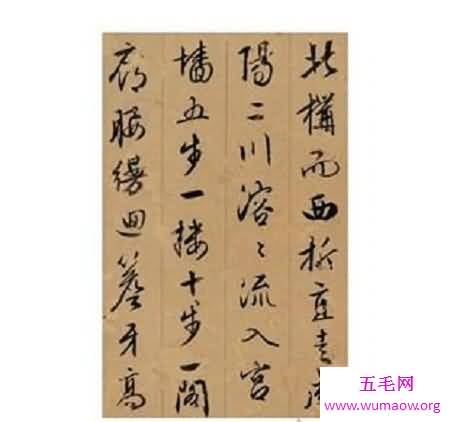 北構而西折直走
陽二川溶〻流入宮
墻五步一樓十步一閣
廊腰縵迴簷牙高
五毛网
www.wumaow.org